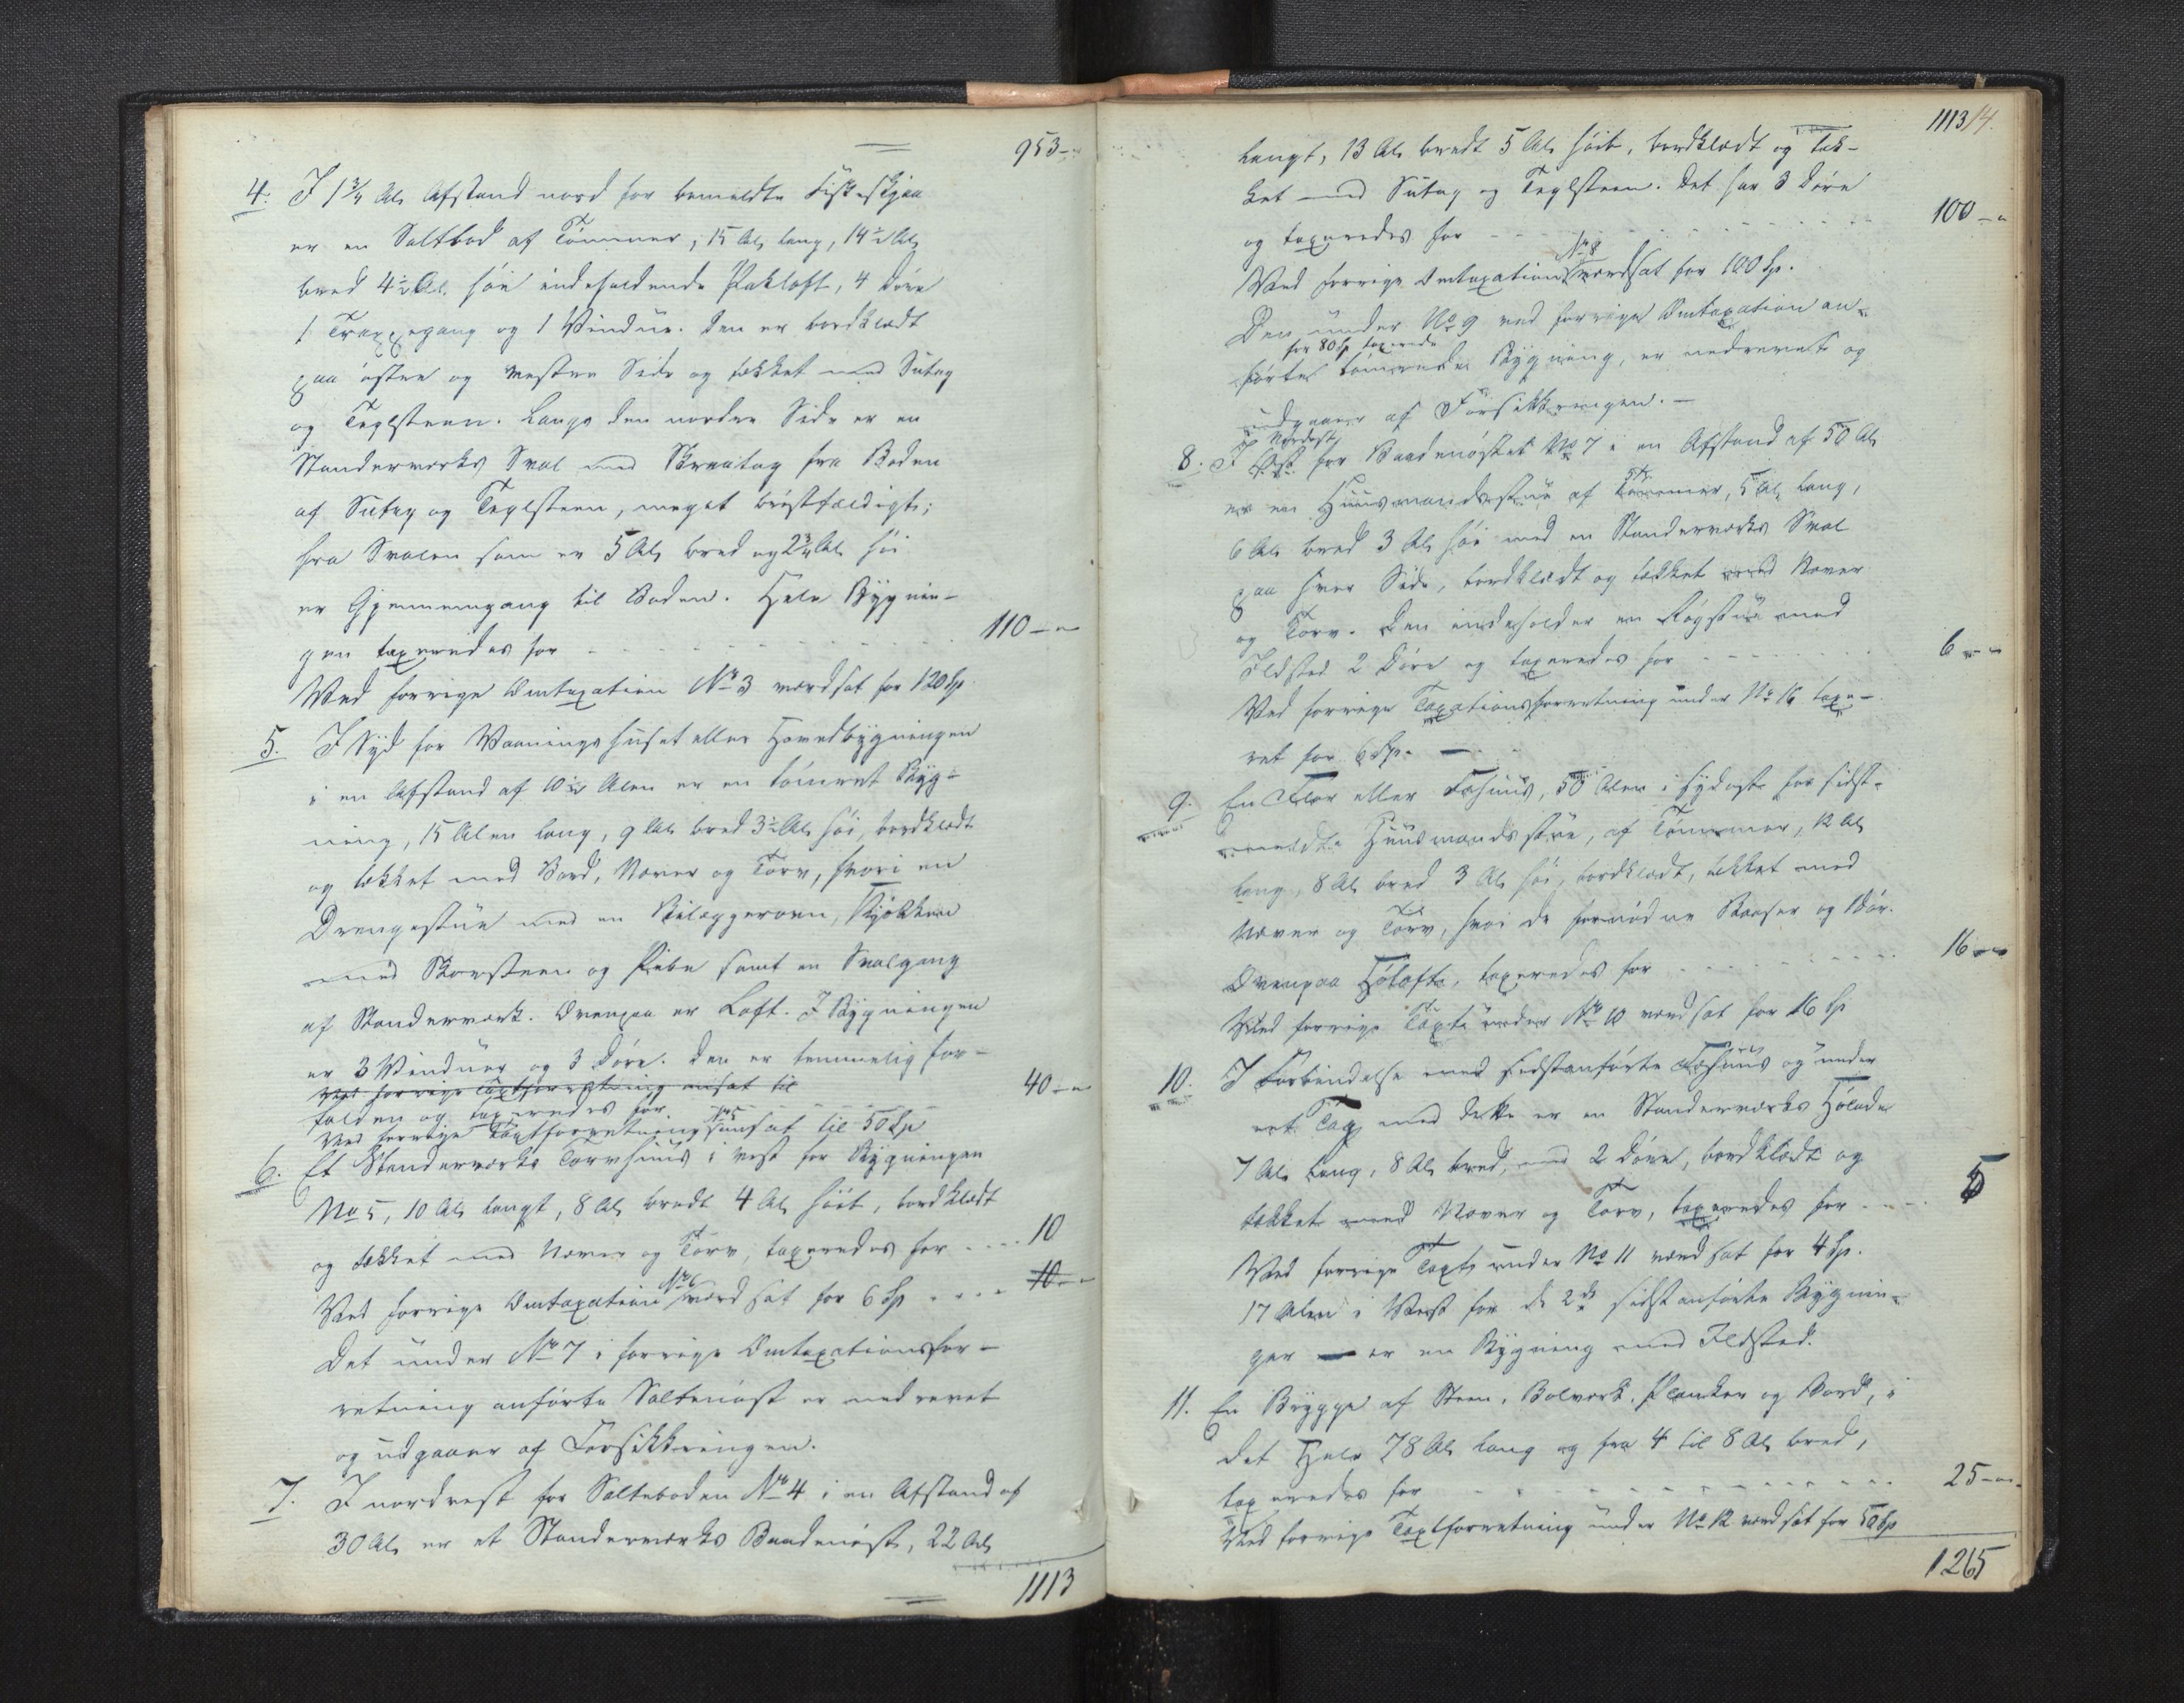 953-"
4. I 1 3/4 Al. Afstand nord for bemeldte Fiskeskjaa
er en Saltbod af Tømmer, 15 Al. lang, 14 1/2 Al.
bred 4 1/2 Al. høi indeholdende Pakloft, 4 Døre
1 Trappegang og 1 Vindue. Den er bordklædt
paa østre og vestre Side og tækket med Sutag
og Teglsteen. Langs den nordre Side er en
Standerværks Sval med Skraatag fra Boden
af Sutag og Teglsteen, meget brøstfældigt;
fra Svalen som er 5 Al. bred og 2 3/4 Al. høi
er Gjennemgang til Boden. Hele Bygnin-
gen taxeredes for - - - - - - 110 - "
Ved forrige Omtaxation No 3 værdsat for 120 Sp.
5. I Syd for Vaaningshuset eller Hovedbygningen
i en Afstand af 10 1/2 Alen er en tømret Byg-
ning, 15 Alen lang, 9 Al. bred 3 1/2 Al. høi, bordklædt
og tækket med Bord, Næver og Torv, hvori en
Drengestue med en Bilæggerovn, Kjøkken
med Skorsteen og Pibe samt en Svalgang
af Standerværk. Ovenpaa er Loft. I Bygningen
er 3 Vinduer og 3 Døre. Den er temmelig for-
Ved forrige Taxtforretning ansat til
falden og taxeredes for - - - - - 40 - "
Ved forrige Taxtforretning No 5 ansat til 50 Sp
6. Et Standerværks Torvhuus i vest for Bygningen
No 5, 10 Al. langt, 8 Al. bredt 4 Al. høit, bordklædt
og tækket med Næver og Torv, taxeredes for - - - 10
Ved forrige Omtaxation No 6 værdsat for 6 Sp - - - 10 - "
Det under No 7 i forrige Omtaxationsfor-
retning anførte Saltnøst er nedrevet
og udgaaer af Forsikkringen.
7. I nordvest for Saltboden No 4 i en Afstand af
30 Al. er et Standerværks Baadenøst, 22 Al.
1113
1113/4.
langt, 13 Al. bredt 5 Al. høit, bordklædt og tæk-
ket med Sutag og Teglsteen. Det har 3 Døre
og taxeredes for - - - - - - - 100 - "
Ved forrige Omtaxation No 8 værdsat for 100 Sp.
Den under No 9 ved forrige Omtaxation an-
for 80 Sp taxerede
førte tømrede Bygning, er nedrevet og
udgaaer af Forsikkringen. -
Nordost
8. I Vest for Baadenøstet No 7 i en Afstand af 50 Al.
er en Huusmandsstue af Tømmer, 5 Al. lang,
6 Al. bred 3 Al. høi med en Standerværks Sval
paa hver Side, bordklædt og tækket med Næver
og Torv. Den indeholder en Røgstue med
Ildsted 2 Døre og taxeredes for - - - - - 6 - "
Ved forrige Taxationsforretning under No 16 taxe-
ret for 6 Sp. -
9. En Flor eller Fæhuus, 50 Alen i sydost for sidst-
meldte Huusmandsstue, af Tømmer, 12 Al.
lang, 8 Al. bred 3 Al. høi, bordklædt, tækket med
Næver og Torv, hvori de fornødne Baaser og 1 Dør.
Ovenpaa Høloft, taxeredes for - - - - - 16 - "
Ved forrige Taxt under No 10 værdsat for 16 Sp
10. I Forbindelse med sidstanførte Fæhuus og under
eet Tag med dette er en Standerværks Hølade
7 Al. lang, 8 Al. bred, med 2 Døre, bordklædt og
tækket med Næver og Torv, taxeredes for - - - 5
Ved forrige Taxt under No 11 værdsat for 4 Sp.
17 Alen i Vest for de 2de sidstanførte Bygnin-
ger er en Bygning med Ildsted.
11. En Brygge af Steen, Bolværk, Planker og Bord, i
det Hele 78 Al. lang og fra 4 til 8 Al. bred,
taxeredes for - - - - - - - - 25 - "
Ved forrige Taxtforretning under No 12 værdsat for 50 Sp
1265